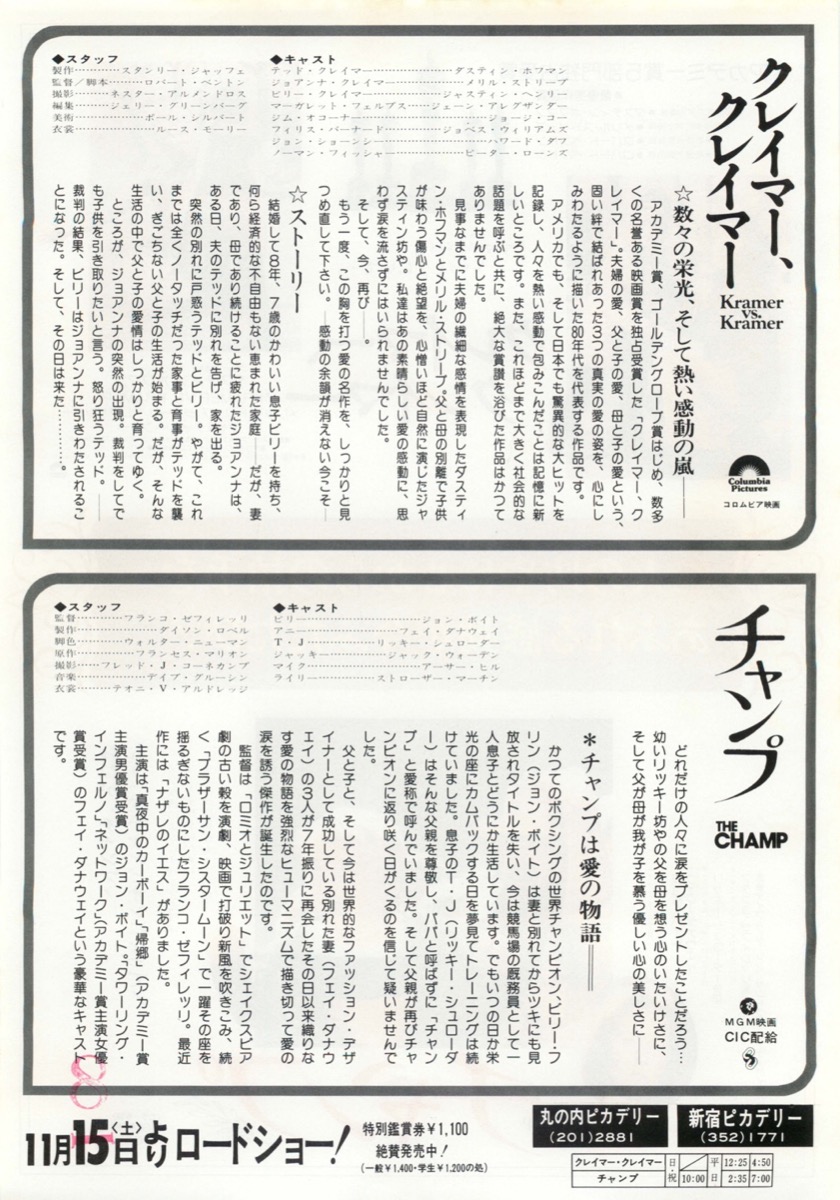 クレイマー、
クレイマー
Kramer
vs.
Kramer
Columbia
Pictures
コロムビア映画
◆キャスト
テッド・クレイマー…………ダスティン・ホフマン
ジョアンナ・クレイマー…………メリル・ストリープ
ビリー・クレイマー…………ジャスティン・ヘンリー
マーガレット・フェルプス……ジェーン・アレグザンダー
ジム・オコーナー…………ジョージ・コー
フィリス・バーナード……ジョベス・ウィリアムズ
ジョン・ショーンシー…………ハワード・ダフ
ノーマン・フィッシャー…………ピーター・ローンズ
◆スタッフ
製作…………スタンリー・ジャッフェ
監督/脚本…………ロバート・ベントン
撮影………ネスター・アルメンドロス
編集………ジェリー・グリーンバーグ
美術…………ポール・シルバート
衣裳…………ルース・モーリー
☆数々の栄光、そして熱い感動の嵐——
アカデミー賞、ゴールデングローブ賞はじめ、数多
くの名誉ある映画賞を独占受賞した「クレイマー、ク
レイマー」。夫婦の愛、父と子の愛、母と子の愛という、
固い絆で結ばれあった3つの真実の愛の姿を、心にし
みわたるように描いた80年代を代表する作品です。
アメリカでも、そして日本でも驚異的な大ヒットを
記録し、人々を熱い感動で包みこんだことは記憶に新
しいところです。また、これほどまで大きく社会的な
話題を呼ぶと共に、絶大な賞讃を浴びた作品はかつて
ありませんでした。
見事なまでに夫婦の繊細な感情を表現したダスティ
ン・ホフマンとメリル・ストリープ。父と母の別離で子供
が味わう傷心と絶望を、心憎いほど自然に演じたジャ
スティン坊や。私達はあの素晴らしい愛の感動に、思
わず涙を流さずにはいられませんでした。
そして、今、再び——。
もう一度、この胸を打つ愛の名作を、しっかりと見
つめ直して下さい。——感動の余韻が消えない今こそ——
☆ストーリー
結婚して8年、7歳のかわいい息子ビリーを持ち、
何ら経済的な不自由もない恵まれた家庭——だが、妻
であり、母であり続けることに疲れたジョアンナは、
ある日、夫のテッドに別れを告げ、家を出る。
突然の別れに戸惑うテッドとビリー。やがて、これ
までは全くノータッチだった家事と育事がテッドを襲
い、ぎごちない父と子の生活が始まる。だが、そんな
生活の中で父と子の愛情はしっかりと育ってゆく。
ところが、ジョアンナの突然の出現。裁判をしてで
も子供を引き取りたいと言う。怒り狂うテッド。——
裁判の結果、ビリーはジョアンナに引きわたされるこ
とになった。そして、その日は来た…………。
チャンプ
THE
CHAMP
MGM映画
CIC配給
◆キャスト
ビリー…………ジョン・ボイト
アニー…………フェイ・ダナウェイ
T・J…………リッキー・シュローダー
ジャッキー…………ジャック・ウォーデン
マイク…………アーサー・ヒル
ライリー…………ストローザー・マーチン
◆スタッフ
監督………フランコ・ゼフィレッリ
製作…………ダイソン・ロベル
脚色………ウォルター・ニューマン
原作………フランセス・マリオン
撮影……フレッド・J・コーネカンプ
音楽…………デイブ・グルーシン
衣裳……テオニ・V・アルドレッジ
どれだけの人々に涙をプレゼントしたことだろう…
幼いリッキー坊やの父を母を想う心のいたいけさに、
そして父が母が我が子を慕う優しい心の美しさに——
＊チャンプは愛の物語——
かつてのボクシングの世界チャンピオン、ビリー・フ
リン(ジョン・ボイト)は妻と別れてからツキにも見
放されタイトルを失い、今は競馬場の厩務員として一
人息子とどうにか生活しています。でもいつの日か栄
光の座にカムバックする日を夢見てトレーニングは続
けていました。息子のT・J(リッキー・シュローダ
ー)はそんな父親を尊敬し、パパと呼ばずに「チャン
プ」と愛称で呼んでいました。そして父親が再びチャ
ンピオンに返り咲く日がくるのを信じて疑いませんで
した。
父と子と、そして今は世界的なファッション・デザ
イナーとして成功している別れた妻(フェイ・ダナウ
ェイ)の3人が7年振りに再会したその日以来織りな
す愛の物語を強烈なヒューマニズムで描き切って愛の
涙を誘う傑作が誕生したのです。
監督は「ロミオとジュリエット」でシェイクスピア
劇の古い殻を演劇、映画で打破り新風を吹きこみ、続
く「ブラザーサン・シスタームーン」で一躍その座を
揺るぎないものにしたフランコ・ゼフィレッリ。最近
作には「ナザレのイエス」がありました。
主演は「真夜中のカーボーイ」「帰郷」(アカデミー賞
主演男優賞受賞)のジョン・ボイト。「タワーリング・
インフェルノ」「ネットワーク」(アカデミー賞主演女優
賞受賞)のフェイ・ダナウェイという豪華なキャスト
です。
11月15日〈土〉よりロードショー!
特別鑑賞券¥1,100
絶賛発売中!
(一般¥1,400・学生¥1,200の処)
丸の内ピカデリー
(201)2881
新宿ピカデリー
(352)1771
クレイマー・クレイマー 日・祝 平日 12:25 4:50
チャンプ 10:00 2:35 7:00